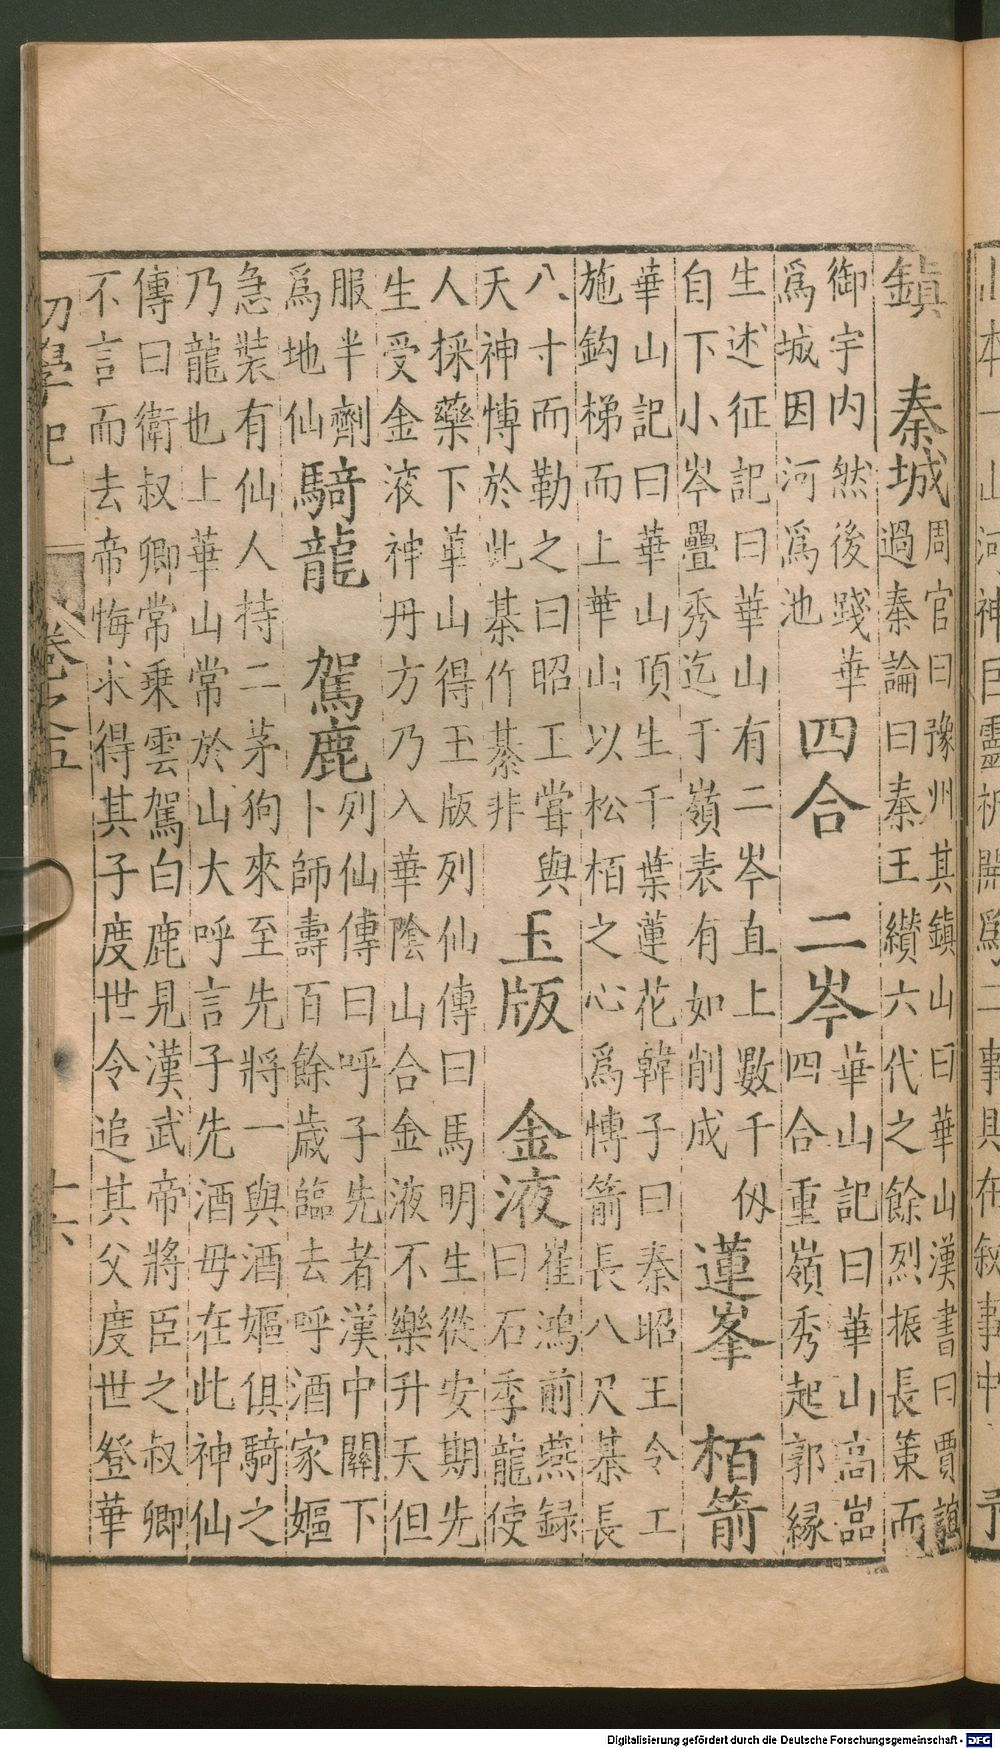 鎮　秦城
周官曰豫州其鎮山曰華山漢書曰賈誼
過秦論曰秦王纘六代之餘烈振長策而
御宇内然後踐華
爲城因河爲池
四合　二岑
華山記曰華山高嵓
四合重嶺秀起郭縁
生述征記曰華山有二岑直上數千仭
自下小岑疊秀迄于嶺表有如削成
蓮峯　栢箭
華山記曰華山頂生千葉蓮花韓子曰秦昭王令工
施鈎梯而上華山以松栢之心爲愽箭長八尺棊長
八寸而勒之曰昭工嘗與
天神愽於此棊竹綦非
玉版　金液
崔鴻前燕録
曰石季龍使
人採藥下華山得玉版列仙傳曰馬明生從安期先
生受金液神丹方乃入華陰山合金液不樂升天但
服半劑
爲地仙
騎龍　駕鹿
列仙傳曰呼子先者漢中關下
卜師壽百餘歳臨去呼酒家嫗
急裝有仙人持二茅狗來至先將一與酒嫗俱騎之
乃龍也上華山常於山大呼言子先酒母在此神仙
傳曰衛叔卿常乗雲駕白鹿見漢武帝將臣之叔卿
不言而去帝悔求得其子度世令追其父度世登華
初學記　卷之五　十六
Digitalisierung gefördert durch die Deutsche Forschungsgemeinschaft - DFG